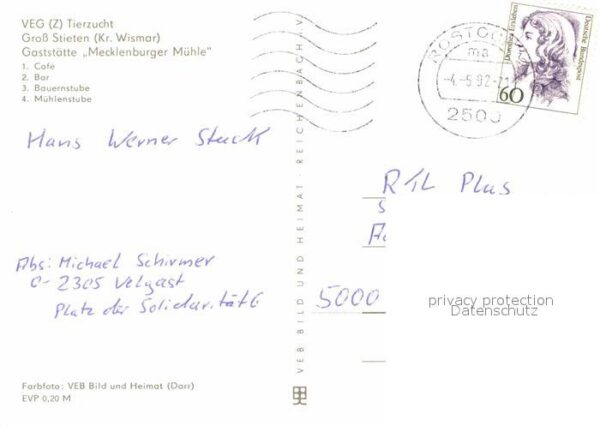 VEG (Z) Tierzucht
Groß Stieten (Kr. Wismar)
Gaststätte „Mecklenburger Mühle"
1. Café
2. Bar
3. Bauernstube
4. Mühlenstube
Hans Werner Stuck
Abs: Michael Schirmer
O-2305 Velgast
Platz der Solidarität 6
Farbfoto: VEB Bild und Heimat (Darr)
EVP 0,20 M
VEB BILD UND HEIMAT · REICHENBACH i. V.
ROSTOCK
ma
-4.-5.92-21
2500
Dorothea Erxleben
Deutsche Bundespost
60
RTL Plus
5000
privacy protection
Datenschutz